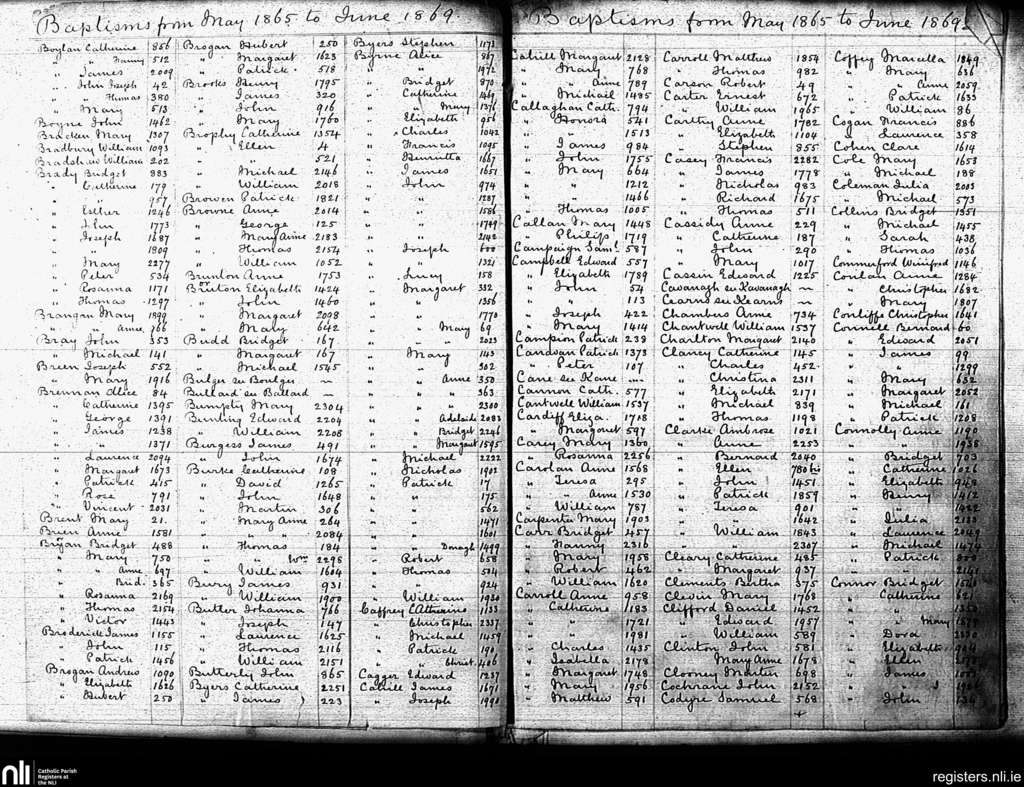 Baptisms from May 1865 to June 1869
Boylan Catherine 856
" " Fanny 512
" James 2009
" John Joseph 42
" Thomas 380
" Mary 513
Boyne John 1462
Bracken Mary 1307
Bradbury William 1093
Bradshaw William 202
Brady Bridget 883
" Catherine 179
" " 957
" Esther 1246
" John 1773
" Joseph 1687
" " 1809
" Mary 2277
" Peter 534
" Rosanna 1171
" Thomas 1297
Brangan Mary 1899
" " Anne 766
Bray John 353
" Michael 141
Breen Joseph 552
" Mary 1916
Brennan Alice 84
" Catherine 1395
" George 1391
" James 1238
" " 1371
" Laurence 2094
" Margaret 1673
" Patrick 415
" Rose 791
" Vincent 2031
Brent Mary 21
Brien Anne 1581
Bryan Bridget 488
" Mary 750
" " Anne 697
" Brid. 365
" Rosanna 2169
" Thomas 2154
" Victor 1443
Broderick James 1155
" John 115
" Patrick 1456
Brogan Andrew 1090
" Elizabeth 1626
" Hubert 250
Brogan Hubert 250
" Margaret 1623
" Patrick 578
Brooks Henry 1795
" James 320
" John 916
" Mary 1760
Brophy Catherine 1354
" Ellen 4
" " 521
" Michael 2146
" William 2018
Browen Patrick 1821
Browne Anne 2014
" George 125
" Mary Anne 2183
" Thomas 2154
" William 1052
Brunton Anne 1753
Bruton Elizabeth 1424
" John 1460
" Margaret 2098
" Mary 642
Budd Bridget 167
" Margaret 167
" Michael 1545
Bulger see Boulger —
Bullard see Ballard —
Bumpty Mary 2304
Bunting Edward 2204
" William 2208
Burgess James 491
" John 1674
Burke Catherine 108
" David 1265
" John 1648
" Martin 306
" Mary Anne 264
" " 2084
" Thomas 184
" " Wm 2298
" William 1604
Bury James 931
" William 1900
Butler Johanna 766
" Joseph 147
" Laurence 1625
" Thomas 2116
" William 2151
Butterly John 865
Byers Catherine 2251
" James 223
Byers Stephen 1173
Byrne Alice 867
" " 1972
" Bridget 870
" Catherine 469
" " Mary 1376
" Elizabeth 956
" Charles 1042
" Francis 1095
" Henrietta 1667
" James 1651
" John 974
" " 1287
" " 1586
" " 1749
" " 2142
" Joseph 600
" " 1321
" Lucy 158
" Margaret 332
" " 1356
" " 1770
" " Mary 69
" " 2023
" Mary 143
" " 302
" " Anne 350
" " " 363
" " " 2300
" " Adelaide 2083
" " Bridget 2246
" " Margaret 1595
" Michael 2222
" Nicholas 1902
" Patrick 17
" " 175
" " 562
" " 1471
" " 1601
" " Donagh 1499
" Robert 658
" Thomas 504
" " 924
" William 1930
Caffrey Catherine 1133
" Christopher 2337
" Michael 1459
" Patrick 190
" " Christ. 406
Cagger Edward 1237
Cahill James 1671
" Joseph 1990
Baptisms from May 1865 to June 1869
Cahill Margaret 2128
" Mary 768
" " Anne 789
" Michael 1485
Callaghan Cath. 794
" Honora 541
" " 1513
" James 984
" John 1755
" Mary 664
" " 1212
" " 1466
" Thomas 1005
Callan Mary 1448
" Philip 1719
Campaign Saml. 587
Campbell Edward 557
" Elizabeth 1789
" John 54
" " 113
" Joseph 422
" Mary 1414
Campion Patrick 238
Canavan Patrick 1373
" Peter 107
Cane see Kane —
Cannon Cath. 577
Cantwell William 1537
Cardiff Eliza. 1718
" Margaret 597
Carey Mary 1360
" Rosanna 2256
Carolan Anne 1568
" Teresa 295
" " Anne 1530
" William 787
Carpenter Mary 1903
Carr Bridget 457
" Fanny 2316
" Mary 1958
" Robert 462
" William 1620
Carroll Anne 958
" Catherine 1183
" " 1721
" " 1981
" Charles 1435
" Isabella 2178
" Margaret 1748
" Mary 1956
" Matthew 591
Carroll Matthew 1854
" Thomas 982
Carson Robert 49
Carter Ernest 672
" William 1965
Carthy Anne 1782
" Elizabeth 1104
" Stephen 855
Casey Francis 2282
" James 1778
" Nicholas 983
" Richard 1675
" Thomas 511
Cassidy Anne 229
" Catherine 187
" John 290
" Mary 1017
Cassin Edward 1225
Cavanagh see Kavanagh —
Cearns see Kearns —
Chambers Anne 734
Chantwell William 1537
Charlton Margaret 2140
Clancy Catherine 145
" Charles 452
" Christina 2311
" Elizabeth 2171
" Michael 839
" Thomas 1198
Clarke Ambrose 1021
" Anne 2253
" Bernard 2040
" Ellen 780 bis
" John 1451
" Patrick 1859
" Teresa 901
" " 1642
" William 1843
" " 2307
Cleary Catherine 485
" Margaret 937
Clements Bertha 375
Clevin Mary 1768
Clifford Daniel 1452
" Edward 1957
" William 589
Clinton John 581
" Mary Anne 1678
Clooney Martin 698
Cochrane John 2152
Codyre Samuel 568
Coffey Marcella 1849
" Mary 636
" " Anne 2059
" Patrick 1633
" William 86
Cogan Francis 886
" Laurence 358
Cohen Clare 1614
Cole Mary 1653
" Michael 188
Coleman Julia 2003
" Michael 573
Collins Bridget 1351
" Michael 1455
" Sarah 438
" Thomas 1036
Commerford Winifred 1146
Conlan Anne 1284
" Christopher 1682
" Mary 1807
Conliffe Christopher 1641
Connell Bernard 60
" Edward 2051
" James 99
" " 1299
" Mary 632
" Margaret 2052
" Michael 161
" Patrick 1208
Connolly Anne 1190
" " 1938
" Bridget 703
" Catherine 1026
" Elizabeth
" Henry 1412
" " 1422
" Julia
" Laurence 2049
" Michael 1474
" Patrick
" " 2141
Connor Bridget
" Catherine 621
" "
" " Mary
" Dora
" Elizabeth
" Ellen
" James
" John
nli
Catholic Parish
Registers at
the NLI
registers.nli.ie